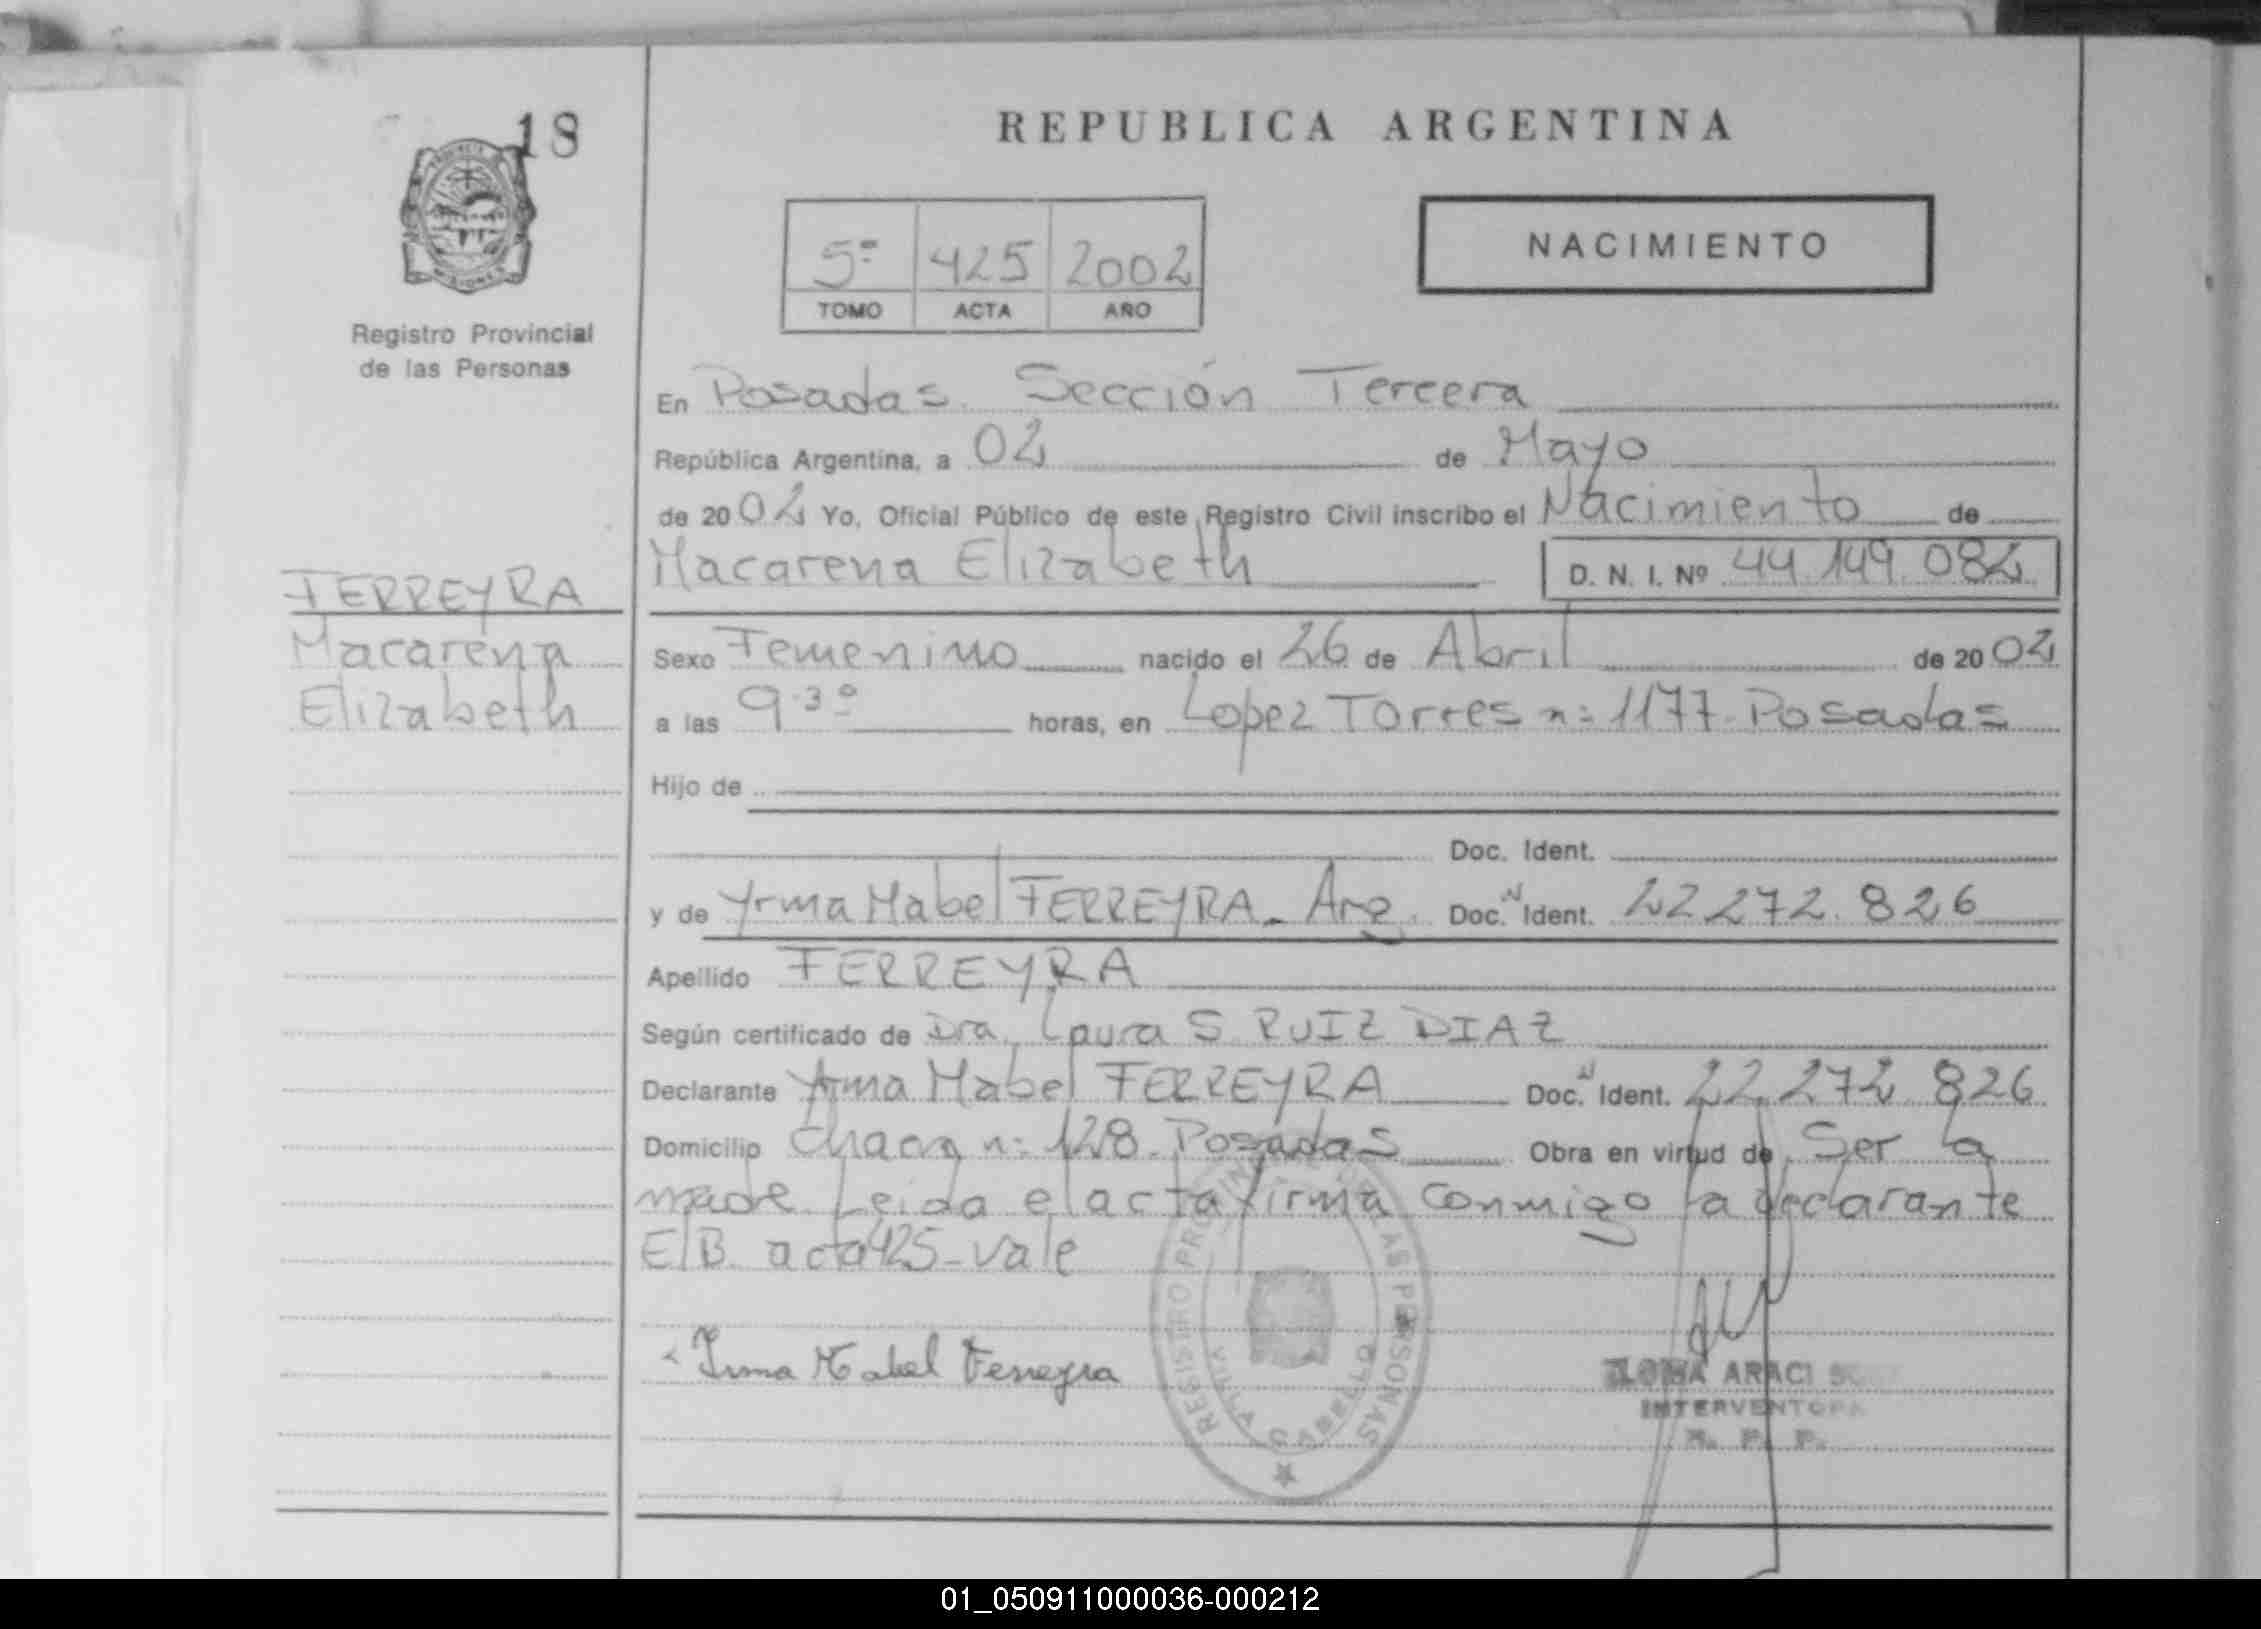 18
REPUBLICA ARGENTINA
5º 425 2002
TOMO ACTA AÑO
NACIMIENTO
Registro Provincial
de las Personas
En Posadas. Sección Tercera
República Argentina, a 02 de Mayo
de 2002 Yo, Oficial Público de este Registro Civil inscribo el Nacimiento de
Macarena Elizabeth D. N. I. Nº 44.149.082
FERREYRA
Macarena
Elizabeth
Sexo Femenino nacido el 26 de Abril de 2002
a las 9.30 horas, en Lopez Torres nº 1177 Posadas
Hijo de
Doc. Ident.
y de Yrma Mabel FERREYRA. Arg. Doc. N Ident. 22.272.826
Apellido FERREYRA
Según certificado de Dra. Laura S. RUIZ DIAZ
Declarante Yrma Mabel FERREYRA Doc. N Ident. 22.272.826
Domicilio nº 128 Posadas Obra en virtud de Ser la
madre. Leida el acta firma conmigo la declarante
E/B. acta 425 - vale
Irma Mabel Ferreyra
REGISTRO PROVINCIAL DE LAS PERSONAS
VILLA CABELLO
ARACI
INTERVENTORA
R. P. P.
PROVINCIA DE
MISIONES
01_050911000036-000212